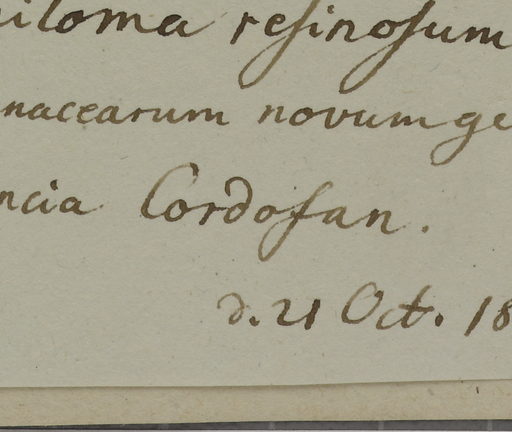 iloma resinosum
nacearum novum ge
ncia Cordofan.
d. 21 Oct. 18